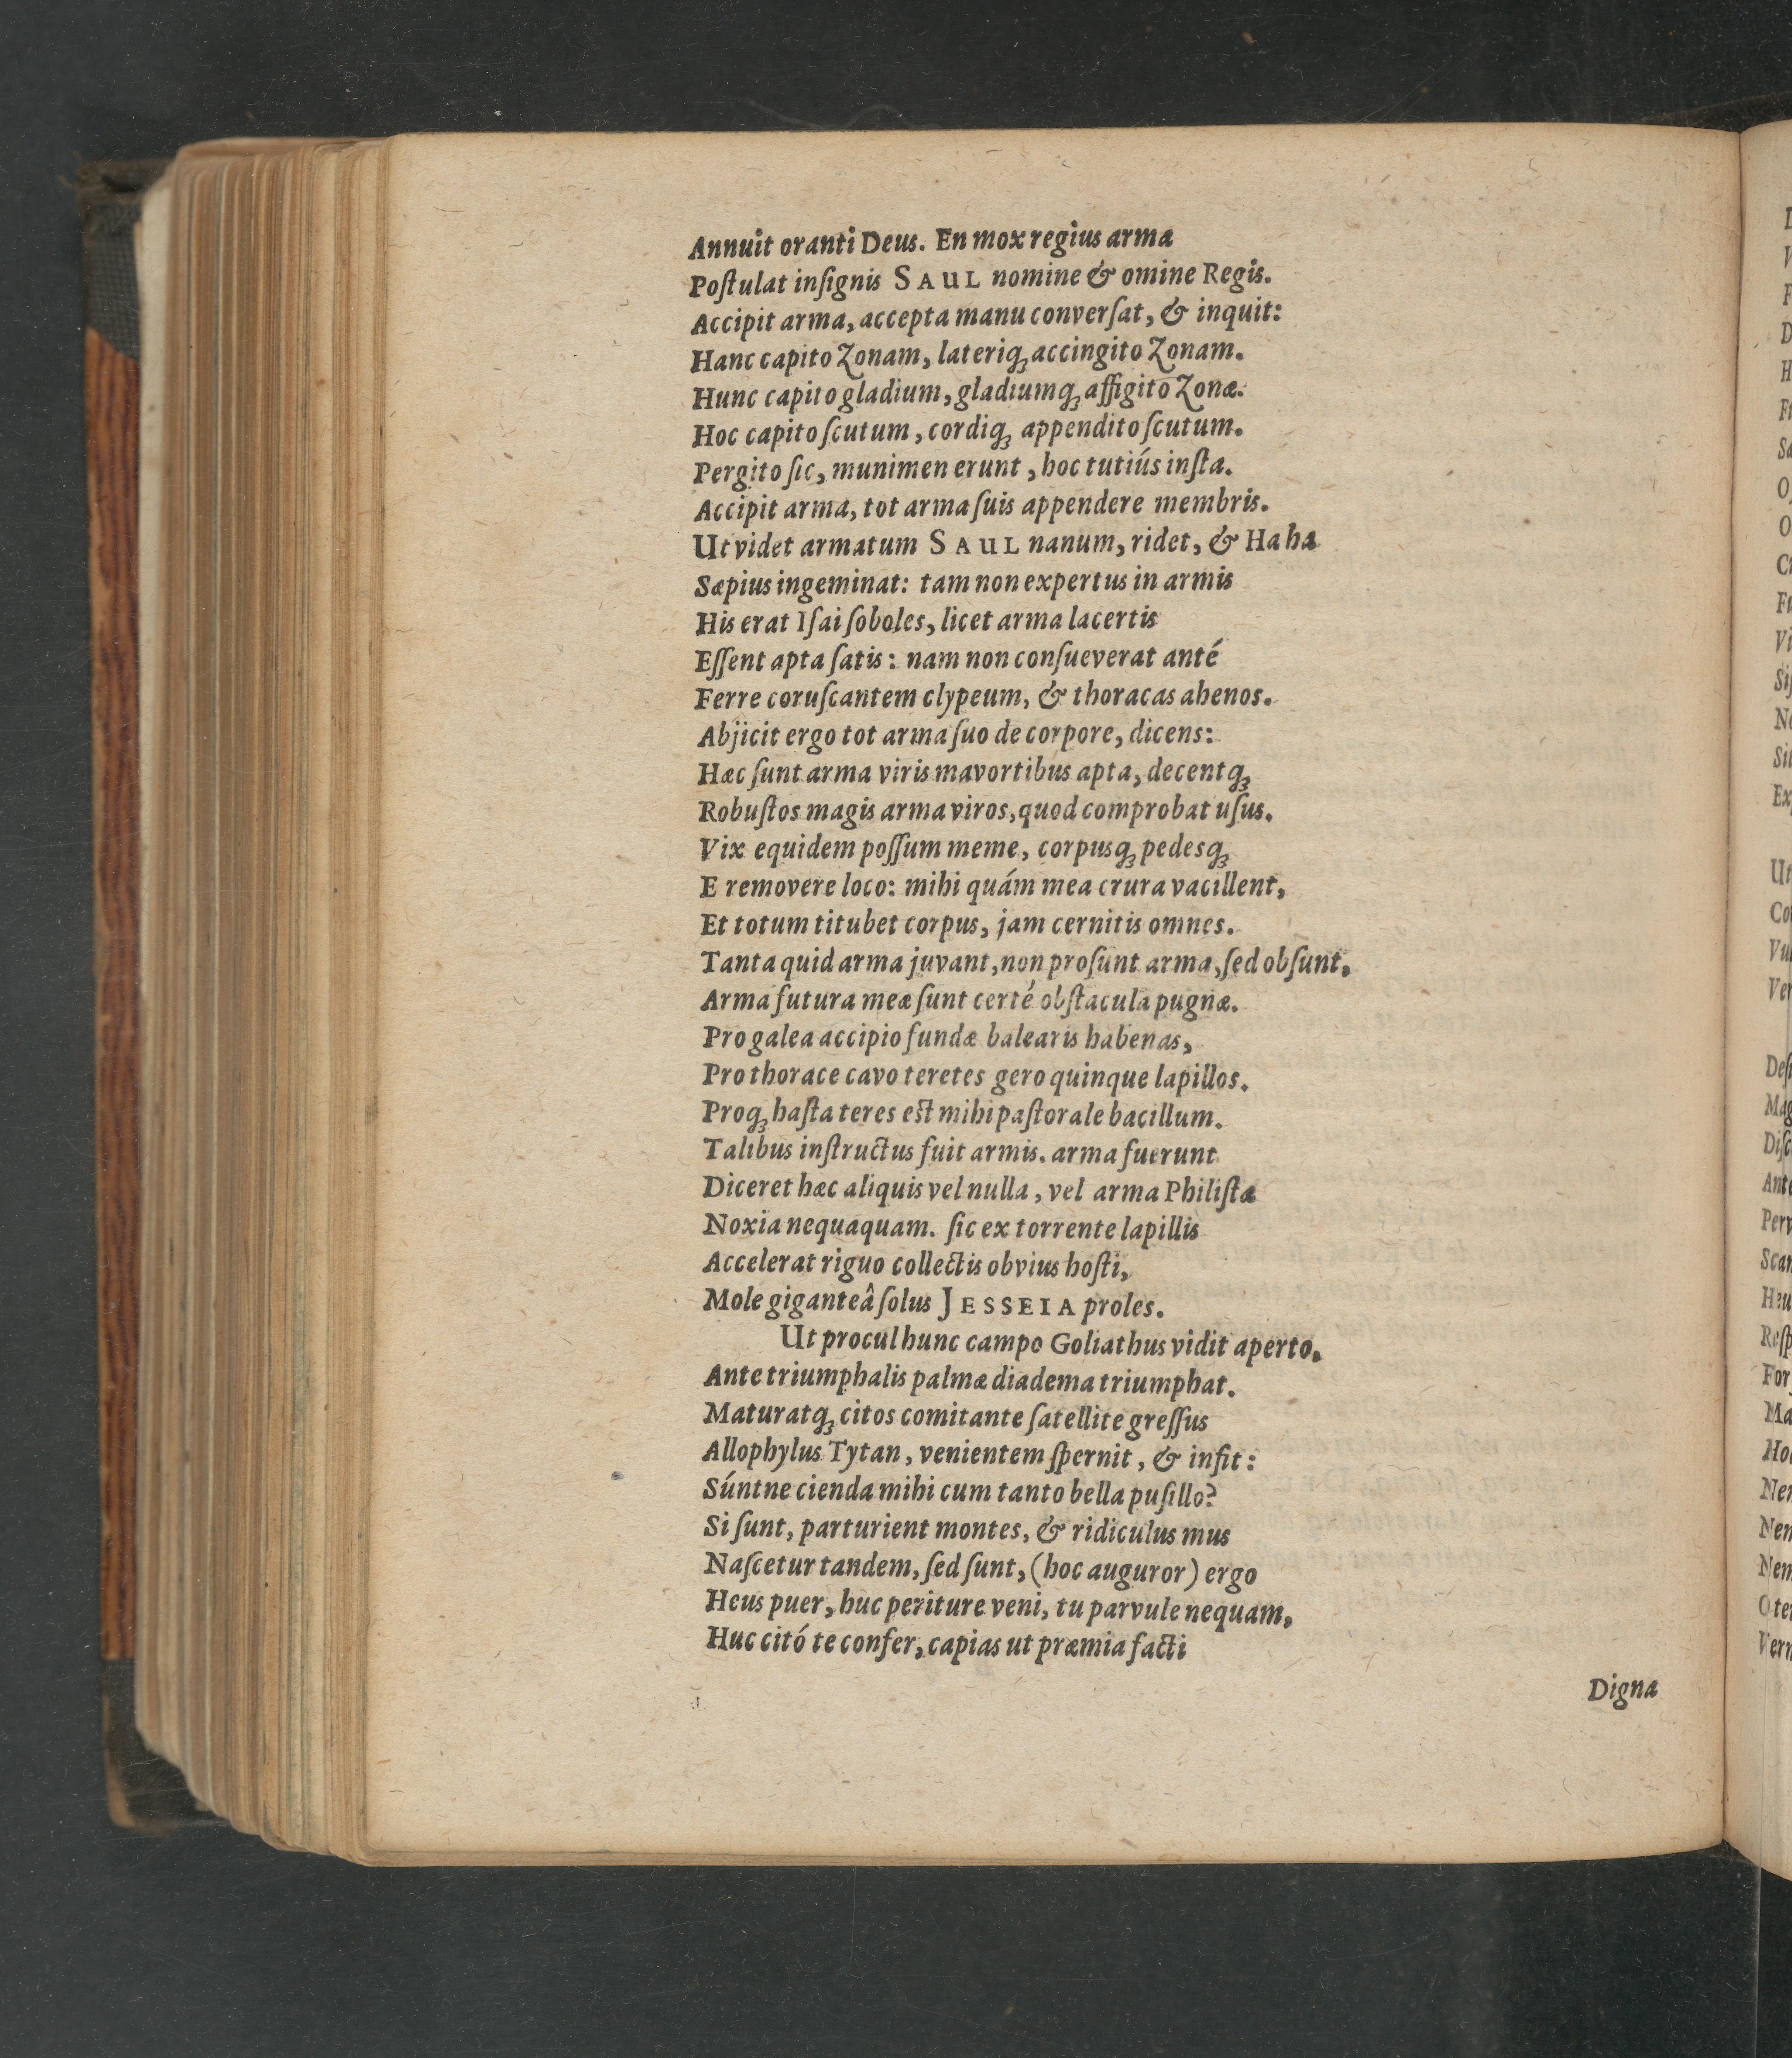 Annuit oranti Deus. En mox regius arma
Poſtulat inſignis SAUL nomine & omine Regis.
Accipit arma, accepta manu converſat, & inquit:
Hanc capito Zonam, lateriq́ꝫ accingito Zonam.
Hunc capito gladium, gladiumq́ꝫ affigito Zonæ.
Hoc capito ſcutum, cordiq́ꝫ appendito ſcutum.
Pergito ſic, munimen erunt, hoc tutiús inſta.
Accipit arma, tot arma ſuis appendere membris.
Ut videt armatum SAUL nanum, ridet, & Ha ha
Sæpius ingeminat: tam non expertus in armis
His erat Iſai ſoboles, licet arma lacertis
Eſſent apta ſatis: nam non conſueverat anté
Ferre coruſcantem clypeum, & thoracas ahenos.
Abjicit ergo tot arma ſuo de corpore, dicens:
Hæc ſunt arma viris mavortibus apta, decentq́ꝫ
Robuſtos magis arma viros, quod comprobat uſus.
Vix equidem poſſum meme, corpusq́ꝫ pedesq́ꝫ
E removere loco: mihi quám mea crura vacillent,
Et totum titubet corpus, jam cernitis omnes.
Tanta quid arma juvant, non proſunt arma, ſed obſunt.
Arma futura meæ ſunt certé obſtacula pugnæ.
Pro galea accipio fundæ balearis habenas,
Pro thorace cavo teretes gero quinque lapillos.
Proq́ꝫ haſta teres est mihi paſtorale bacillum.
Talibus inſtructus fuit armis. arma fuerunt
Diceret hæc aliquis vel nulla, vel arma Philiſtæ
Noxia nequaquam. ſic ex torrente lapillis
Accelerat riguo collectis obvius hoſti,
Mole giganteâ ſolus JESSEIA proles.
Ut procul hunc campo Goliathus vidit aperto.
Ante triumphalis palmæ diadema triumphat.
Maturatq́ꝫ citos comitante ſatellite greſſus
Allophylus Tytan, venientem ſpernit, & infit:
Súntne cienda mihi cum tanto bella puſillo?
Si ſunt, parturient montes, & ridiculus mus
Naſcetur tandem, ſed ſunt, (hoc auguror) ergo
Heus puer, huc periture veni, tu parvule nequam,
Huc citó te confer, capias ut præmia facti
Digna